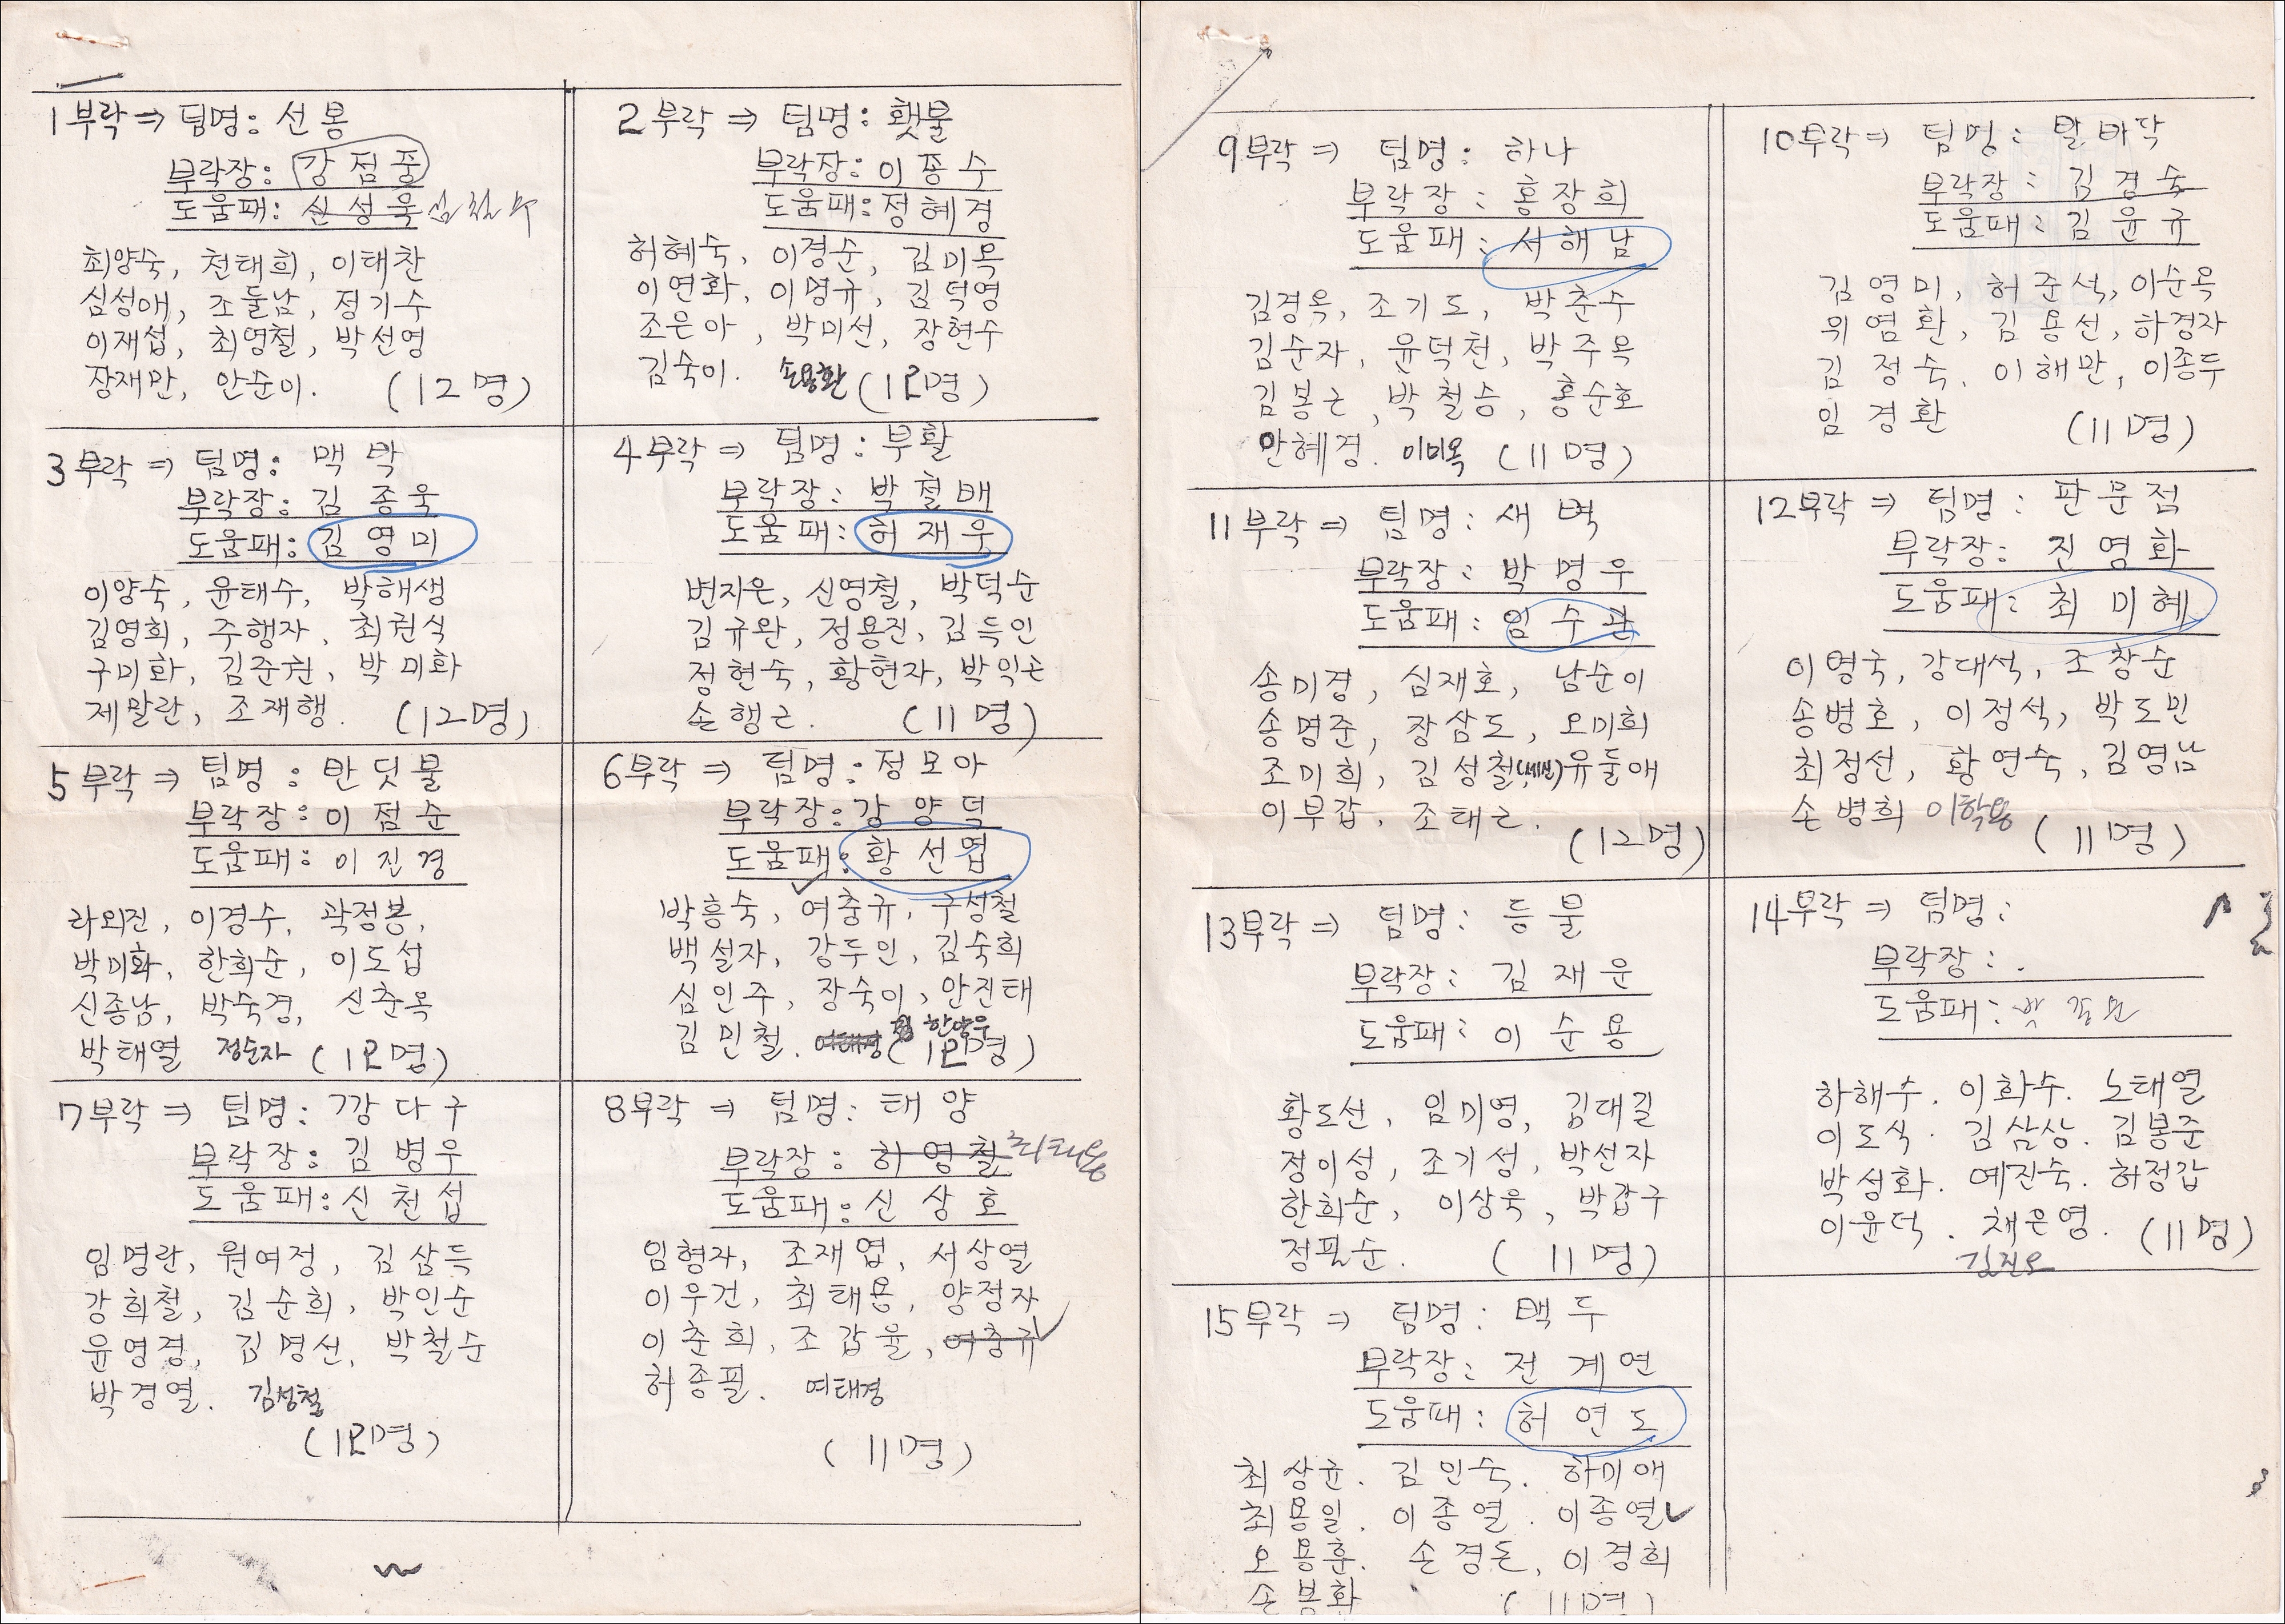 1부락 ⇒ 팀명: 선봉
부락장: 강점중
도움패: 신성욱
최양숙, 천태희, 이태찬
심성애, 조둘남, 정기수
이재섭, 최영철, 박선영
장재만, 안순이. (12명)
2부락 ⇒ 팀명: 횃불
부락장: 이종수
도움패: 정혜경
허혜숙, 이경순, 김미옥
이연화, 이명규, 김덕영
조은아, 박미선, 장현수
김숙이. 손용환 (12명)
3부락 ⇒ 팀명: 맥박
부락장: 김종욱
도움패: 김영미
이양숙, 윤태수, 박해생
김영희, 주행자, 최권식
구미화, 김준권, 박미화
제말란, 조재행. (12명)
4부락 ⇒ 팀명: 부활
부락장: 박철배
도움패: 허재우
변지은, 신영철, 박덕순
김규완, 정용진, 김득인
정현숙, 황현자, 박익손
손행근. (11명)
5부락 ⇒ 팀명: 반딧물
부락장: 이점순
도움패: 이진경
라외진, 이경수, 곽정봉,
박미화, 한희순, 이도섭
신종남, 박숙경, 신춘옥
박태열 정순자 (12명)
6부락 ⇒ 팀명: 정모아
부락장: 강양덕
도움패: 황선엽
박흥숙, 여충규, 구성철
백설자, 강두인, 김숙희
심인주, 장숙이, 안진태
김민철. 여태경 한양우 (12명)
7부락 ⇒ 팀명: 깡다구
부락장: 김병우
도움패: 신천섭
임명란, 원여정, 김삼득
강희철, 김순희, 박인순
윤영경, 김명선, 박철순
박경열. 김성철
(12명)
8부락 ⇒ 팀명: 태양
부락장: 하영철 최태용
도움패: 신상호
임형자, 조재엽, 서상열
이우건, 최태용, 양정자
이춘희, 조갑율, 여충규
허종필. 여태경
(11명)
9부락 ⇒ 팀명: 하나
부락장: 홍장희
도움패: 서해남
김경옥, 조기도, 박춘수
김순자, 윤덕천, 박주옥
김봉근, 박철승, 홍순호
안혜경. 이미옥 (11명)
10부락 ⇒ 팀명: 발바닥
부락장: 김경숙
도움패: 김윤규
김영미, 허준석, 이순옥
위염환, 김용선, 하경자
김정숙, 이해만, 이종두
임경환 (11명)
11부락 ⇒ 팀명: 새벽
부락장: 박명우
도움패: 임수관
송미경, 심재호, 남순이
송명준, 장삼도, 오미희
조미희, 김성철(세신) 유둘애
이부갑, 조태근.
(12명)
12부락 ⇒ 팀명: 판문점
부락장: 진영화
도움패: 최미혜
이영국, 강대석, 조창순
송병호, 이정석, 박도민
최정선, 황연숙, 김영남
손병희 이학용 (11명)
13부락 ⇒ 팀명: 등불
부락장: 김재운
도움패: 이순용
황도선, 임미영, 김대길
정이성, 조기성, 박선자
한희순, 이상욱, 박갑구
정필순. (11명)
14부락 ⇒ 팀명:
부락장:
도움패:
하해수. 이화수. 노태열
이도식. 김삼상. 김봉준
박성화. 예진숙. 허정갑
이윤덕. 채은영. (11명)
15부락 ⇒ 팀명: 백두
부락장: 전계연
도움패: 허연도
최상균. 김인숙. 하미애
최용일. 이종열. 이종열
오용훈. 손경돈, 이경희
손봉화 (11명)